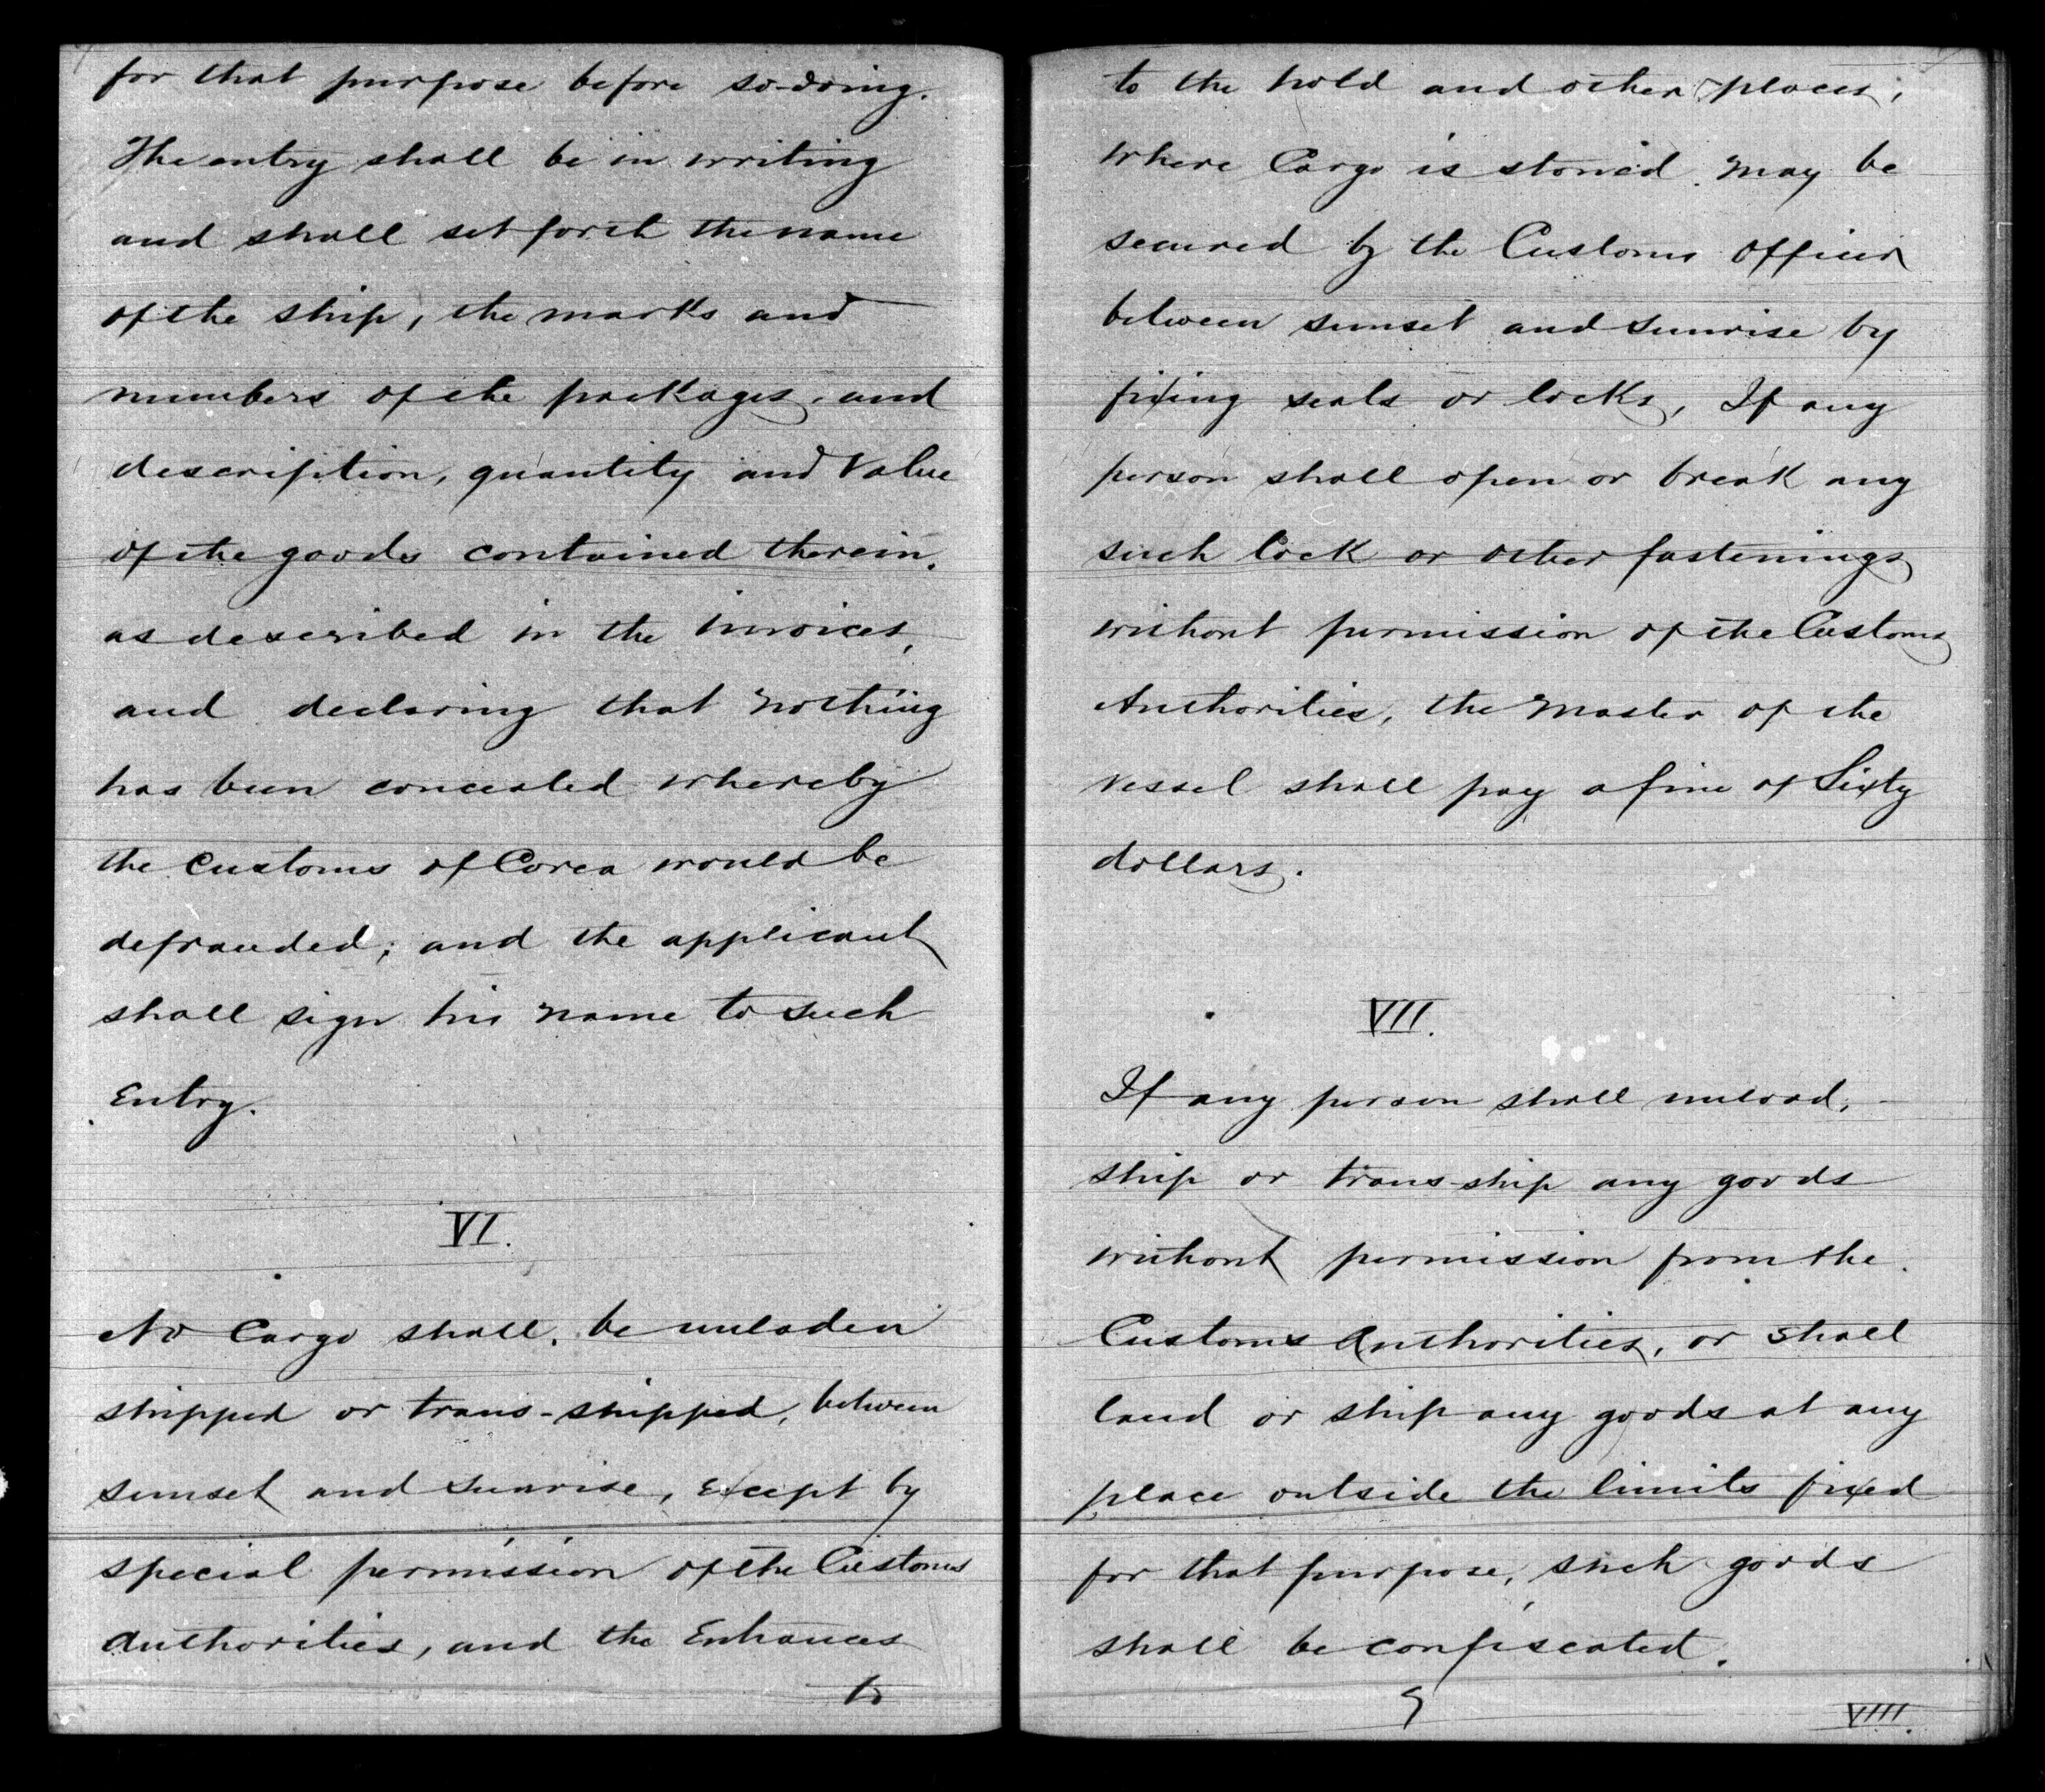 for that purpose before so-doing.
The entry shall be in writing
and shall set forth the name
of the ship, the marks and
numbers of the packages, and
description, quantity and Value
of the goods contained therein,
as described in the invoices,
and declaring that nothing
has been concealed whereby
the Customs of Corea would be
defrauded; and the applicant
shall sign his name to such
Entry.
VI.
No Cargo shall, be unladen
shipped or trans-shipped, between
sunset and sunrise, except by
special permission of the Customs
Authorities, and the Entrances
to
to the hold and other places,
where Cargo is stowed. may be
secured by the Customs Officer
between sunset and sunrise by
fixing seals or locks, If any
person shall open or break any
such lock or other fastenings
without permission of the Customs
Authorities, the Master of the
vessel shall pay a fine of Sixty
dollars.
VII.
If any person shall unload,
ship or trans-ship any goods
without permission from the
Customs Authorities, or shall
land or ship any goods at any
place outside the limits fixed
for that purpose, such goods
shall be confiscated.
VIII.